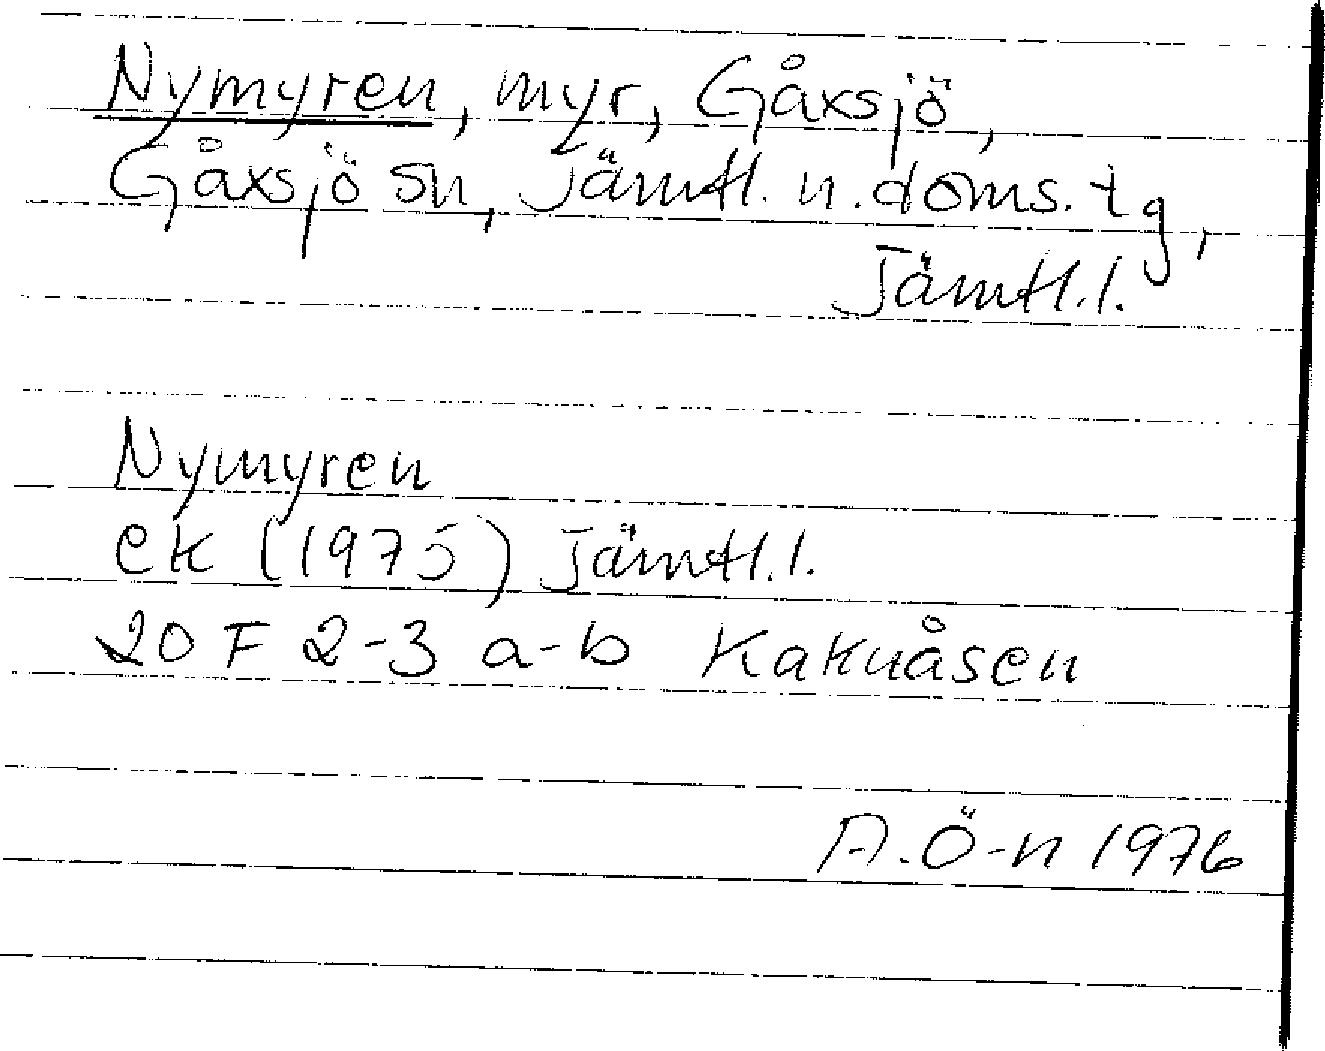 Nymyren, myr, Gåxsjö,
Gåxsjö sn, Jämtl. n. doms. tg,
Jämtl.l.
Nymyren
ek (1975) Jämtl.l.
20 F 2-3 a-b Kakuåsen
A. Ö-n 1976